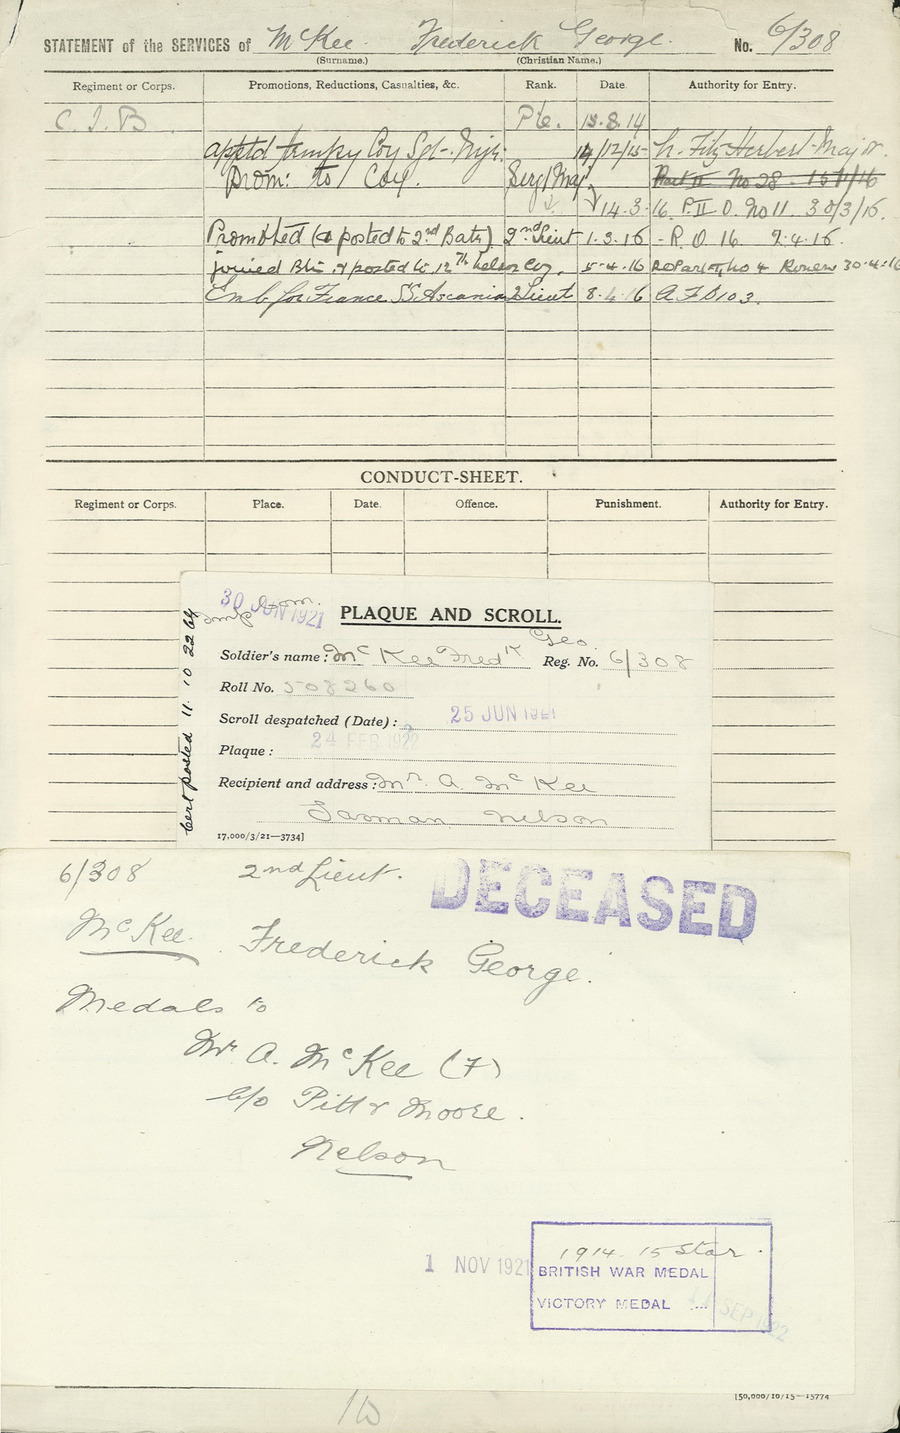 STATEMENT of the SERVICES of McKee. Frederick George. No. 6/308
(Surname.) (Christian Name.)
Regiment or Corps. Promotions, Reductions, Casualties, &c. Rank. Date. Authority for Entry.
C. I. B. Pte. 15.8.14
apptd tempy Coy Sgt-Mjr: 14/12/15 Fitz Herbert Major.
prom: to Coy. Serg/Maj. Part II No 28
14.3.16. P. II O. No 11. 30/3/16.
Promoted (& posted to 2nd Batn) 2nd Lieut 1.3.16 - R.O 16. 7.4.16.
joined Btn. & posted to 12th Nelson Coy. 5-4-16 30-4-16
Emb for France SS Ascania 2 Lieut 8.4.16 A.F.B103.
CONDUCT-SHEET.
Regiment or Corps. Place. Date. Offence. Punishment. Authority for Entry.
30 JUN 1921
PLAQUE AND SCROLL.
Geo
Soldier's name: McKee Fredk Reg. No. 6/308
Roll No. 508260
Scroll despatched (Date): 25 JUN 1921
Plaque: 24 FEB 1922
Recipient and address: Mr. A. McKee
Tasman Nelson
17,000/3/21—3734]
Cert posted 11 10 22
6/308 2nd Lieut. DECEASED
McKee. Frederick George.
Medals to
Mr A. McKee (F)
c/o Pitt & Moore.
Nelson
1914-15 Star.
1 NOV 1921 BRITISH WAR MEDAL
VICTORY MEDAL ... SEP 1922
[50,000/10/15—15774